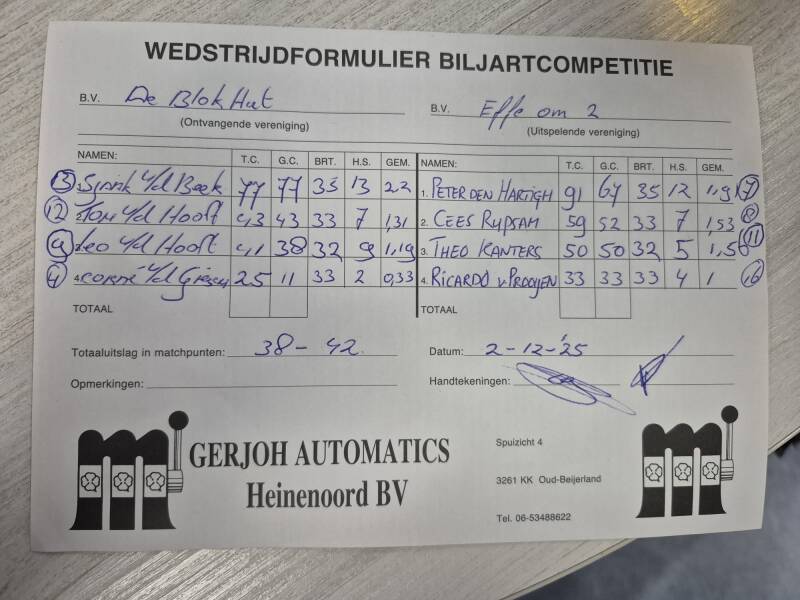 WEDSTRIJDFORMULIER BILJARTCOMPETITIE
B.V. De Blok Hut B.V. Effe om 2
(Ontvangende vereniging) (Uitspelende vereniging)
NAMEN: T.C. G.C. BRT. H.S. GEM. NAMEN: T.C. G.C. BRT. H.S. GEM.
13 v/d Beek 77 77 35 13 2,2 1. PETER DEN HARTIGH 91 67 35 12 1,91 7
12 Tom v/d Hooft 43 43 33 7 1,31 2. CEES RIJPSAM 59 52 33 7 1,53 8
9 Leo v/d Hooft 41 38 32 9 1,19 3. THEO KANTERS 50 50 32 5 1,56 11
4 4. CORNÉ v/d 25 11 33 2 0,33 4. RICARDO v. PROOIJEN 33 33 33 4 1 16
TOTAAL TOTAAL
Totaaluitslag in matchpunten: 38 - 42 Datum: 2-12-'25
Opmerkingen: Handtekeningen:
GERJOH AUTOMATICS
Heinenoord BV
Spuizicht 4
3261 KK Oud-Beijerland
Tel. 06-53488622